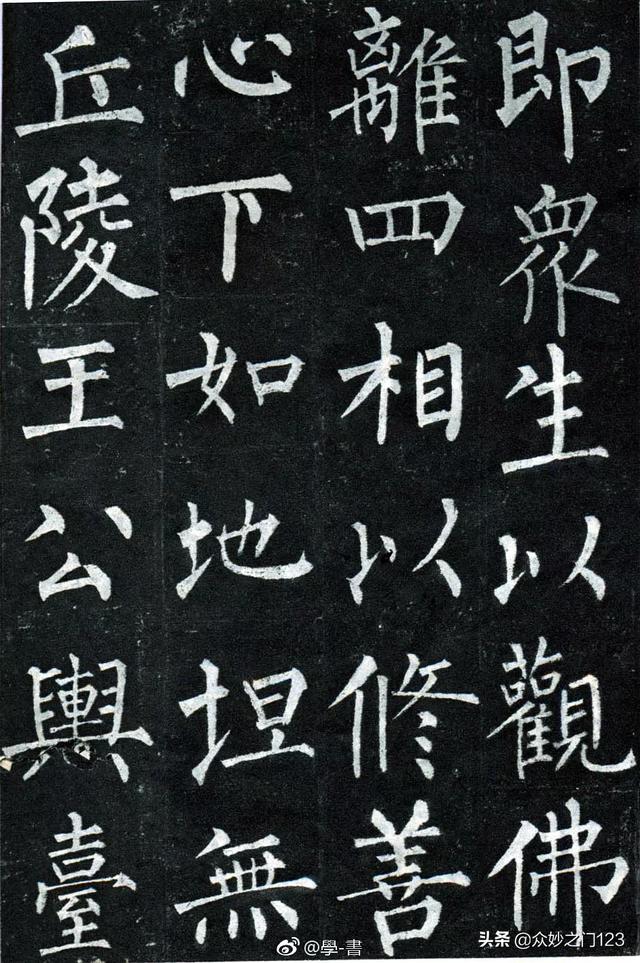 即眾生以觀佛
離四相以修善
心下如地坦無
丘陵王公輿臺
@學-書
头条 @众妙之门123